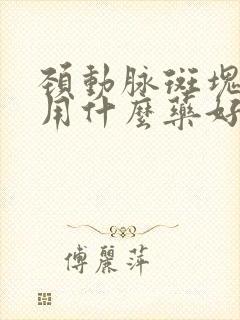 頸動脉斑塊
用什麼藥好
傅麗萍